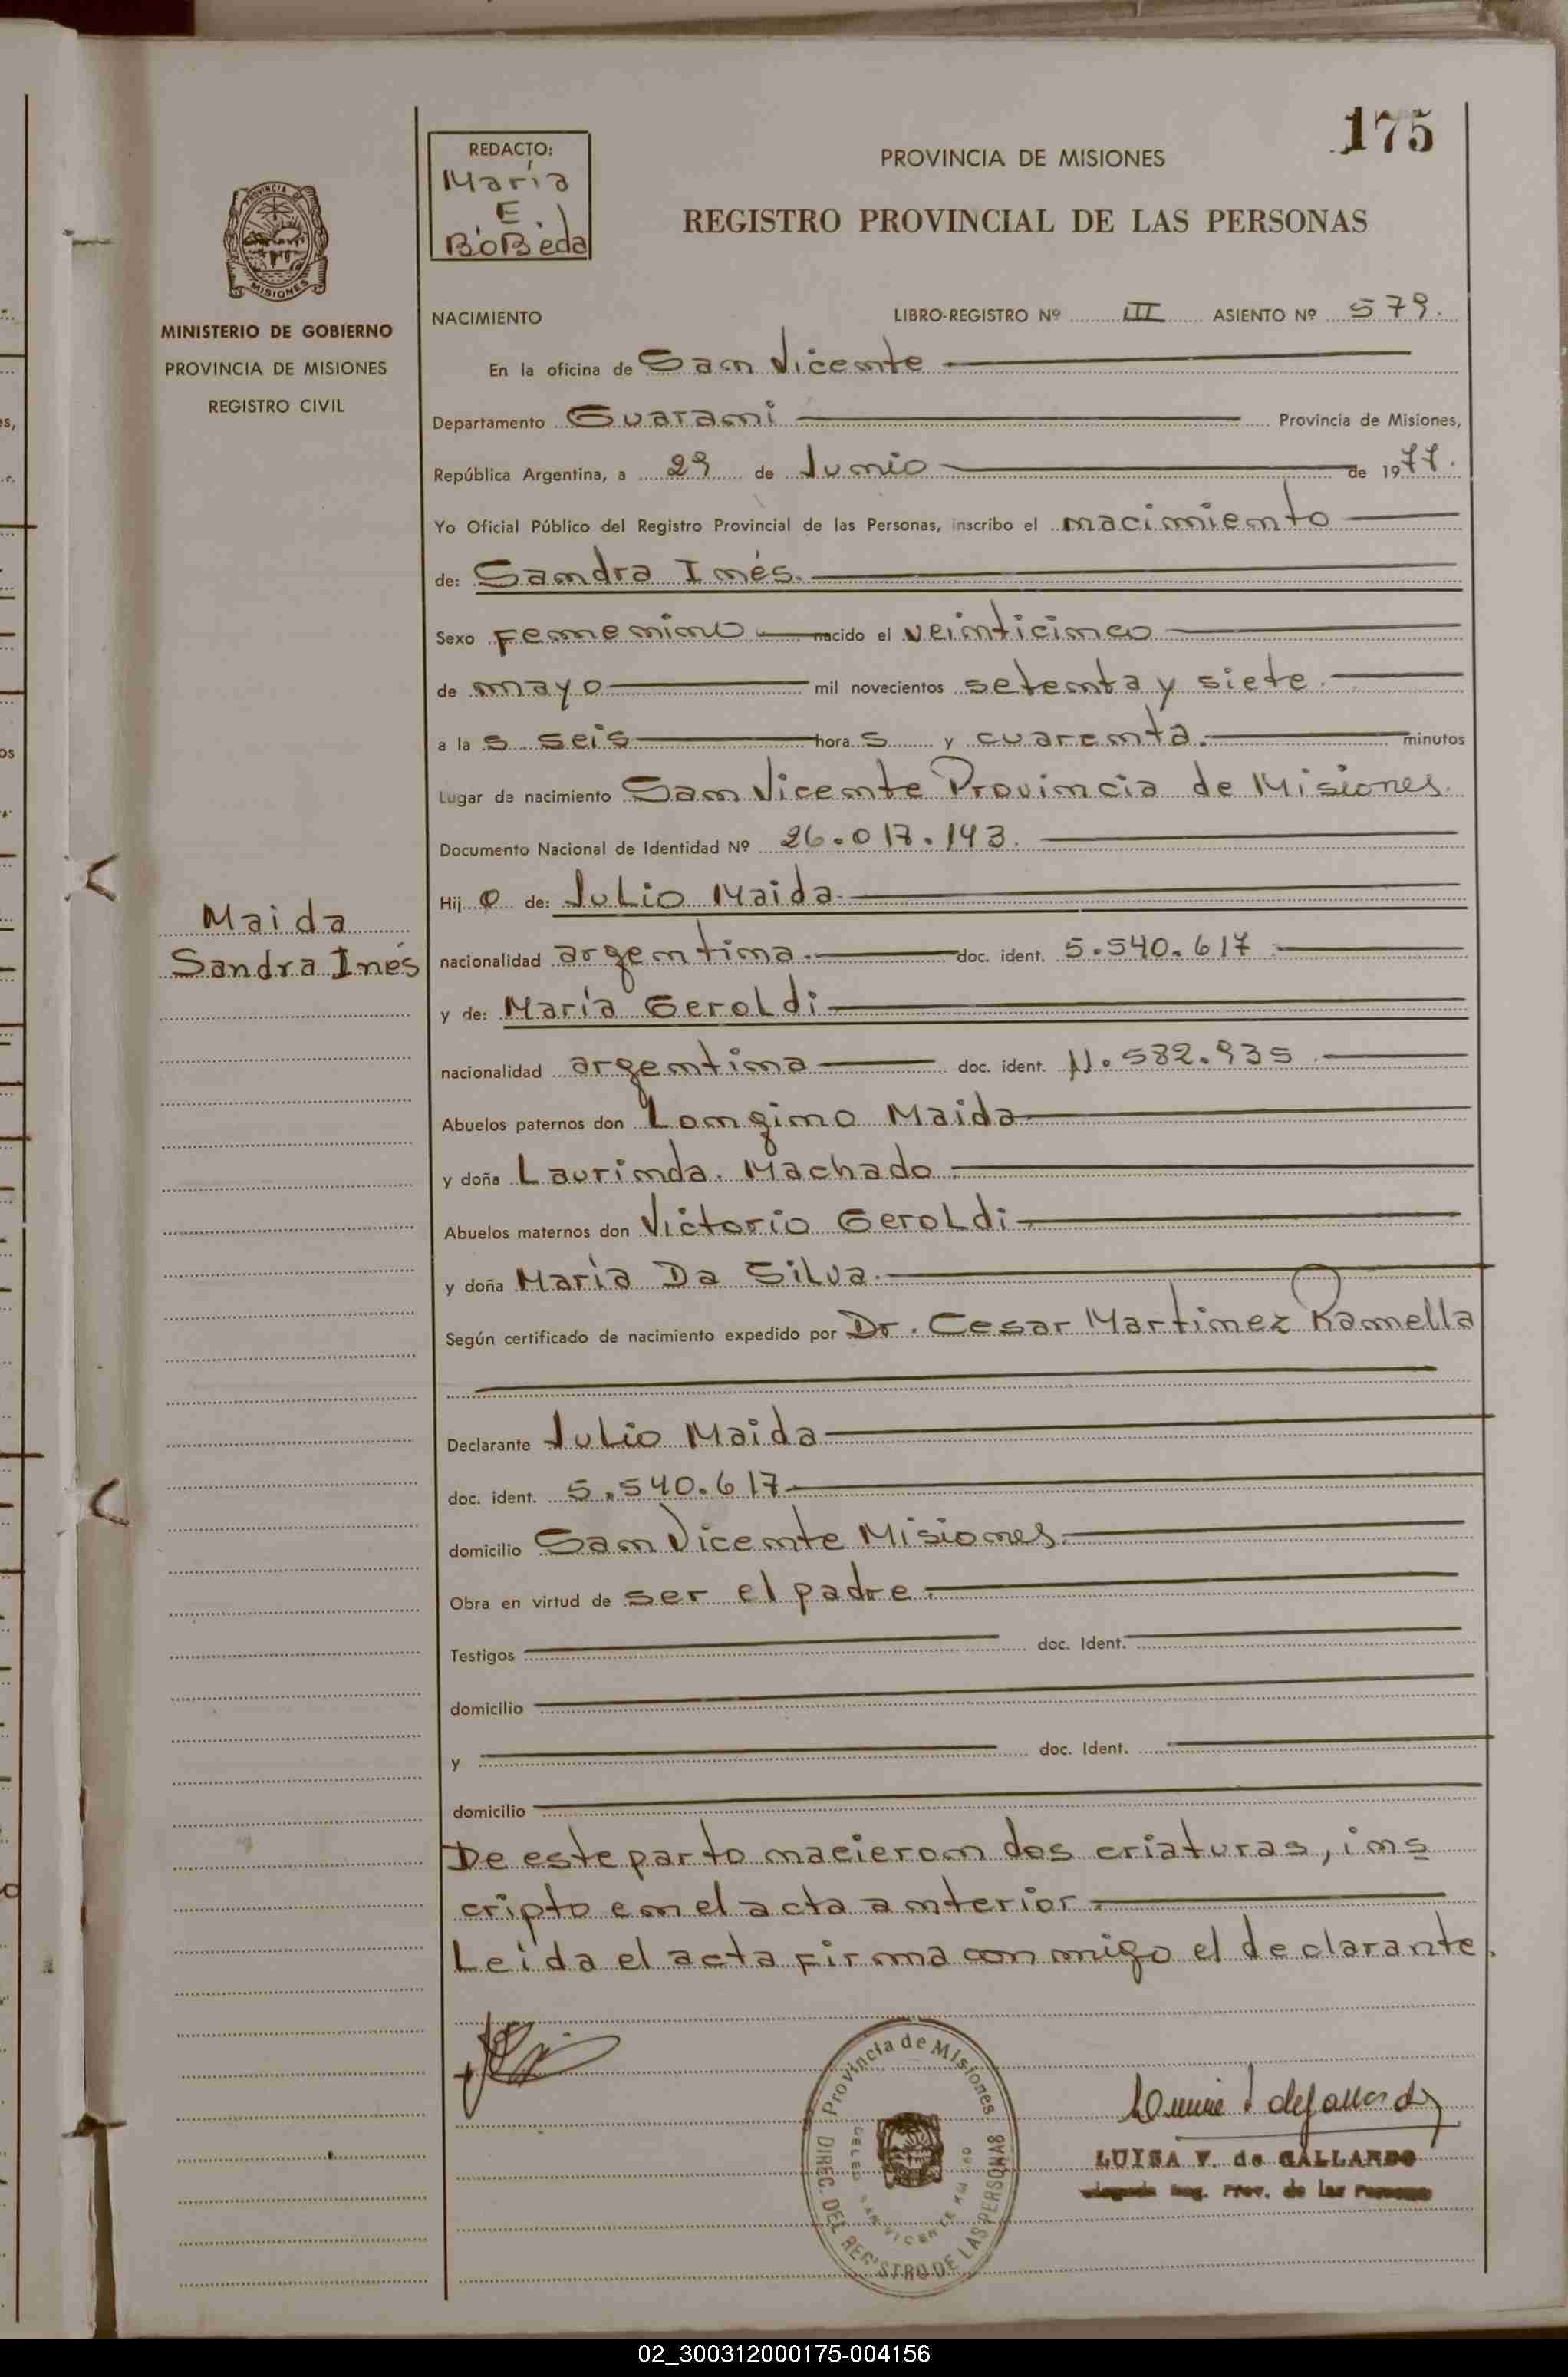 175
REDACTO:
María
E.
BoBeda
PROVINCIA DE MISIONES
REGISTRO PROVINCIAL DE LAS PERSONAS
PROVINCIA DE
MISIONES
MINISTERIO DE GOBIERNO
PROVINCIA DE MISIONES
REGISTRO CIVIL
Maida
Sandra Inés
NACIMIENTO LIBRO-REGISTRO Nº III ASIENTO Nº 579.
En la oficina de San Vicente
Departamento Guarani Provincia de Misiones,
República Argentina, a 29 de Junio de 1977.
Yo Oficial Público del Registro Provincial de las Personas, inscribo el nacimiento
de: Sandra Inés.
Sexo Femenino nacido el veinticinco
de mayo mil novecientos setenta y siete.
a la s seis hora s y cuarenta. minutos
Lugar de nacimiento San Vicente Provincia de Misiones.
Documento Nacional de Identidad Nº 26.017.143.
Hij a de: Julio Maida.
nacionalidad argentina. doc. ident. 5.540.617.
y de: María Geroldi
nacionalidad argentina doc. ident. 11.582.935.
Abuelos paternos don Longino Maida
y doña Laurinda. Machado.
Abuelos maternos don Victorio Geroldi.
y doña María Da Silva.
Según certificado de nacimiento expedido por Dr. Cesar Martinez Ramella
Declarante Julio Maida
doc. ident. 5.540.617.
domicilio San Vicente Misiones.
Obra en virtud de ser el padre.
Testigos doc. Ident.
domicilio
y doc. Ident.
domicilio
De este parto nacieron dos criaturas, ins
cripto en el acta anterior.
Leida el acta firma conmigo el declarante.
Provincia de Misiones
DIREC. DEL REGISTRO DE LAS PERSONAS
DELEG. SAN VICENTE KM 60
LUISA V. de GALLARDO
Reg. Prov. de las Personas
02_300312000175-004156